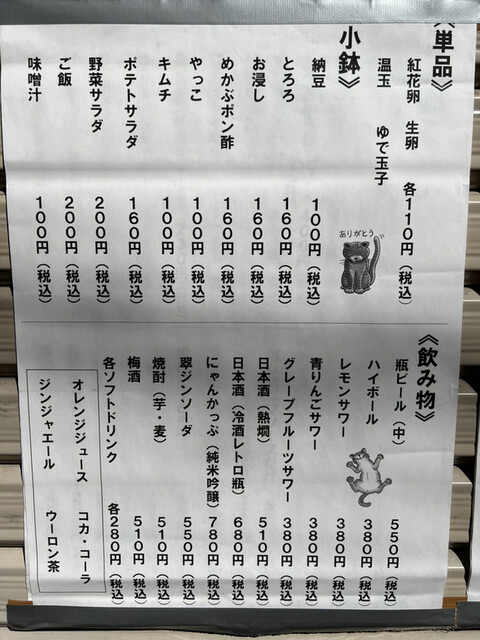 《単品》
紅花卵　生卵　各110円（税込）
温玉　ゆで玉子
《小鉢》
ありがとう
納豆　100円（税込）
とろろ　160円（税込）
お浸し　160円（税込）
めかぶポン酢　160円（税込）
やっこ　100円（税込）
キムチ　100円（税込）
ポテトサラダ　160円（税込）
野菜サラダ　200円（税込）
ご飯　200円（税込）
味噌汁　100円（税込）
《飲み物》
瓶ビール（中）　550円（税込）
ハイボール　380円（税込）
レモンサワー　380円（税込）
青りんごサワー　380円（税込）
グレープフルーツサワー　380円（税込）
日本酒（熱燗）　510円（税込）
日本酒（冷酒レトロ瓶）　680円（税込）
にゃんかっぷ（純米吟醸）　780円（税込）
翠ジンソーダ　550円（税込）
焼酎（芋・麦）　510円（税込）
梅酒　510円（税込）
各ソフトドリンク　各280円（税込）
オレンジジュース　コカ・コーラ
ジンジャエール　ウーロン茶